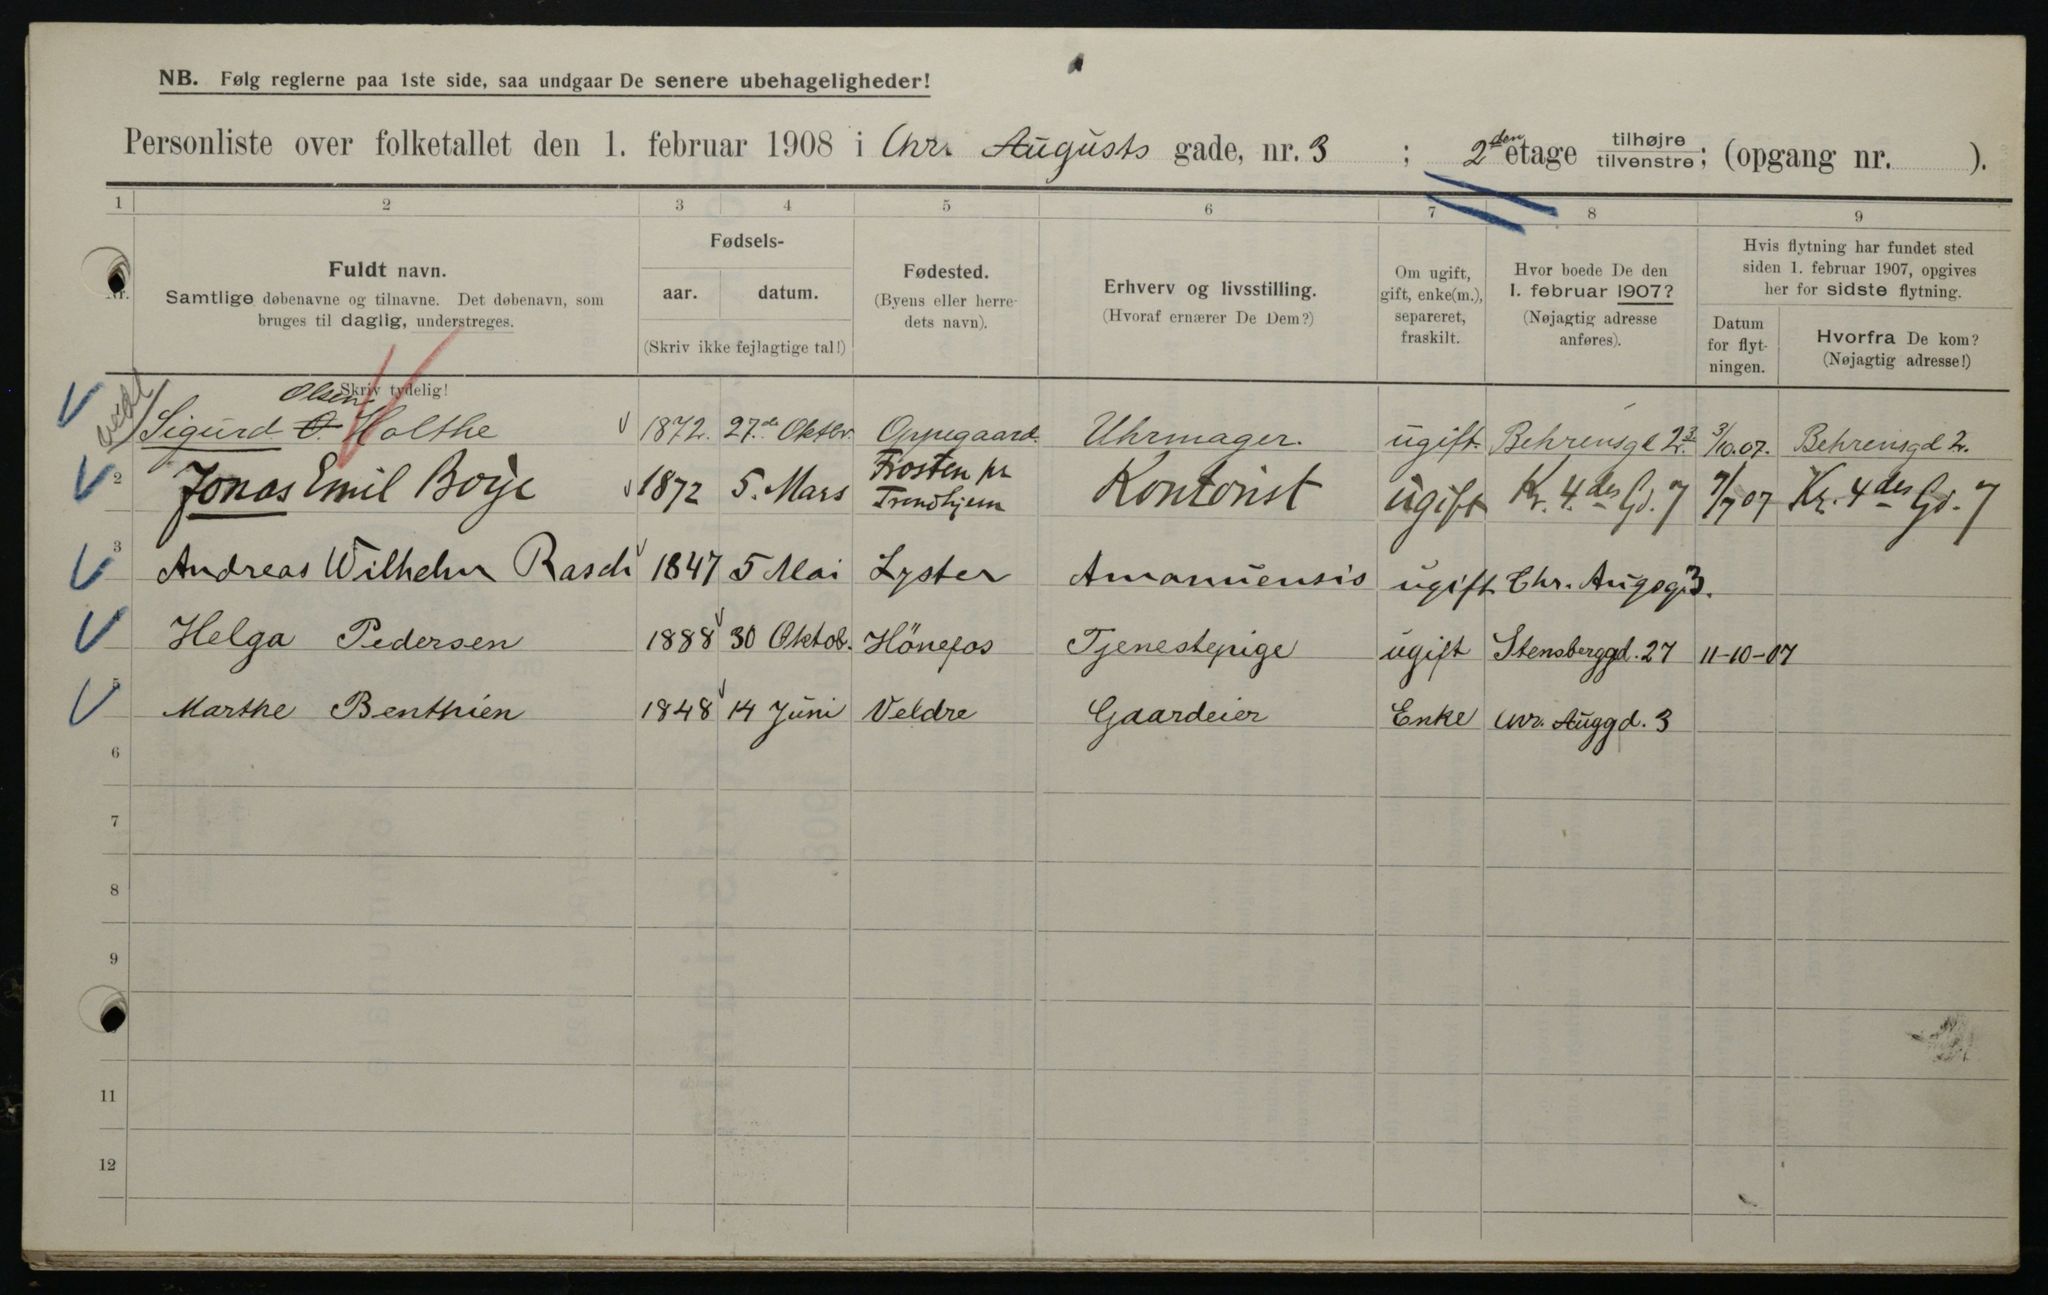 NB. Følg reglerne paa 1ste side, saa undgaar De senere ubehageligheder!
Personliste over folketallet den 1. februar 1908 i Chr. Augusts gade, nr. 3 ; 2den etage tilhøjre tilvenstre; (opgang nr. ).
1 2 3 4 5 6 7 8 9
Nr.
Fuldt navn.
Samtlige døbenavne og tilnavne. Det døbenavn, som
bruges til daglig, understreges.
Skriv tydelig!
Fødsels-
aar. datum.
(Skriv ikke fejlagtige tal!)
Fødested.
(Byens eller herre-
dets navn).
Erhverv og livsstilling.
(Hvoraf ernærer De Dem?)
Om ugift,
gift, enke(m.),
separeret,
fraskilt.
Hvor boede De den
1. februar 1907?
(Nøjagtig adresse
anføres).
Hvis flytning har fundet sted
siden 1. februar 1907, opgives
her for sidste flytning.
Datum
for flyt-
ningen.
Hvorfra De kom?
(Nøjagtig adresse!)
Olsen
Sigurd O. Holthe 1872. 27de Oktbr. Oppegaard. Uhrmager. ugift. Behrensgd 2. 3/10.07. Behrensgd 2.
2 Jonas Emil Borje 1872 5. Mars Frosten pr Trondhjem Kontorist ugift Kr. 4.des Gd. 7 7/7 07 Kr. 4des Gd. 7
3 Andreas Wilhelm Rasch 1847 5 Mai Lyster Amanuensis ugift Chr. Augsg. 3.
Helga Pedersen 1888 30 Oktob. Hönefos Tjenestepige ugift Stensberggd. 27 11-10-07
5 Marthe Benthien 1848 14 Juni Veldre Gaardeier Enke Chr. Auggd. 3
6
7
8
9
11
12